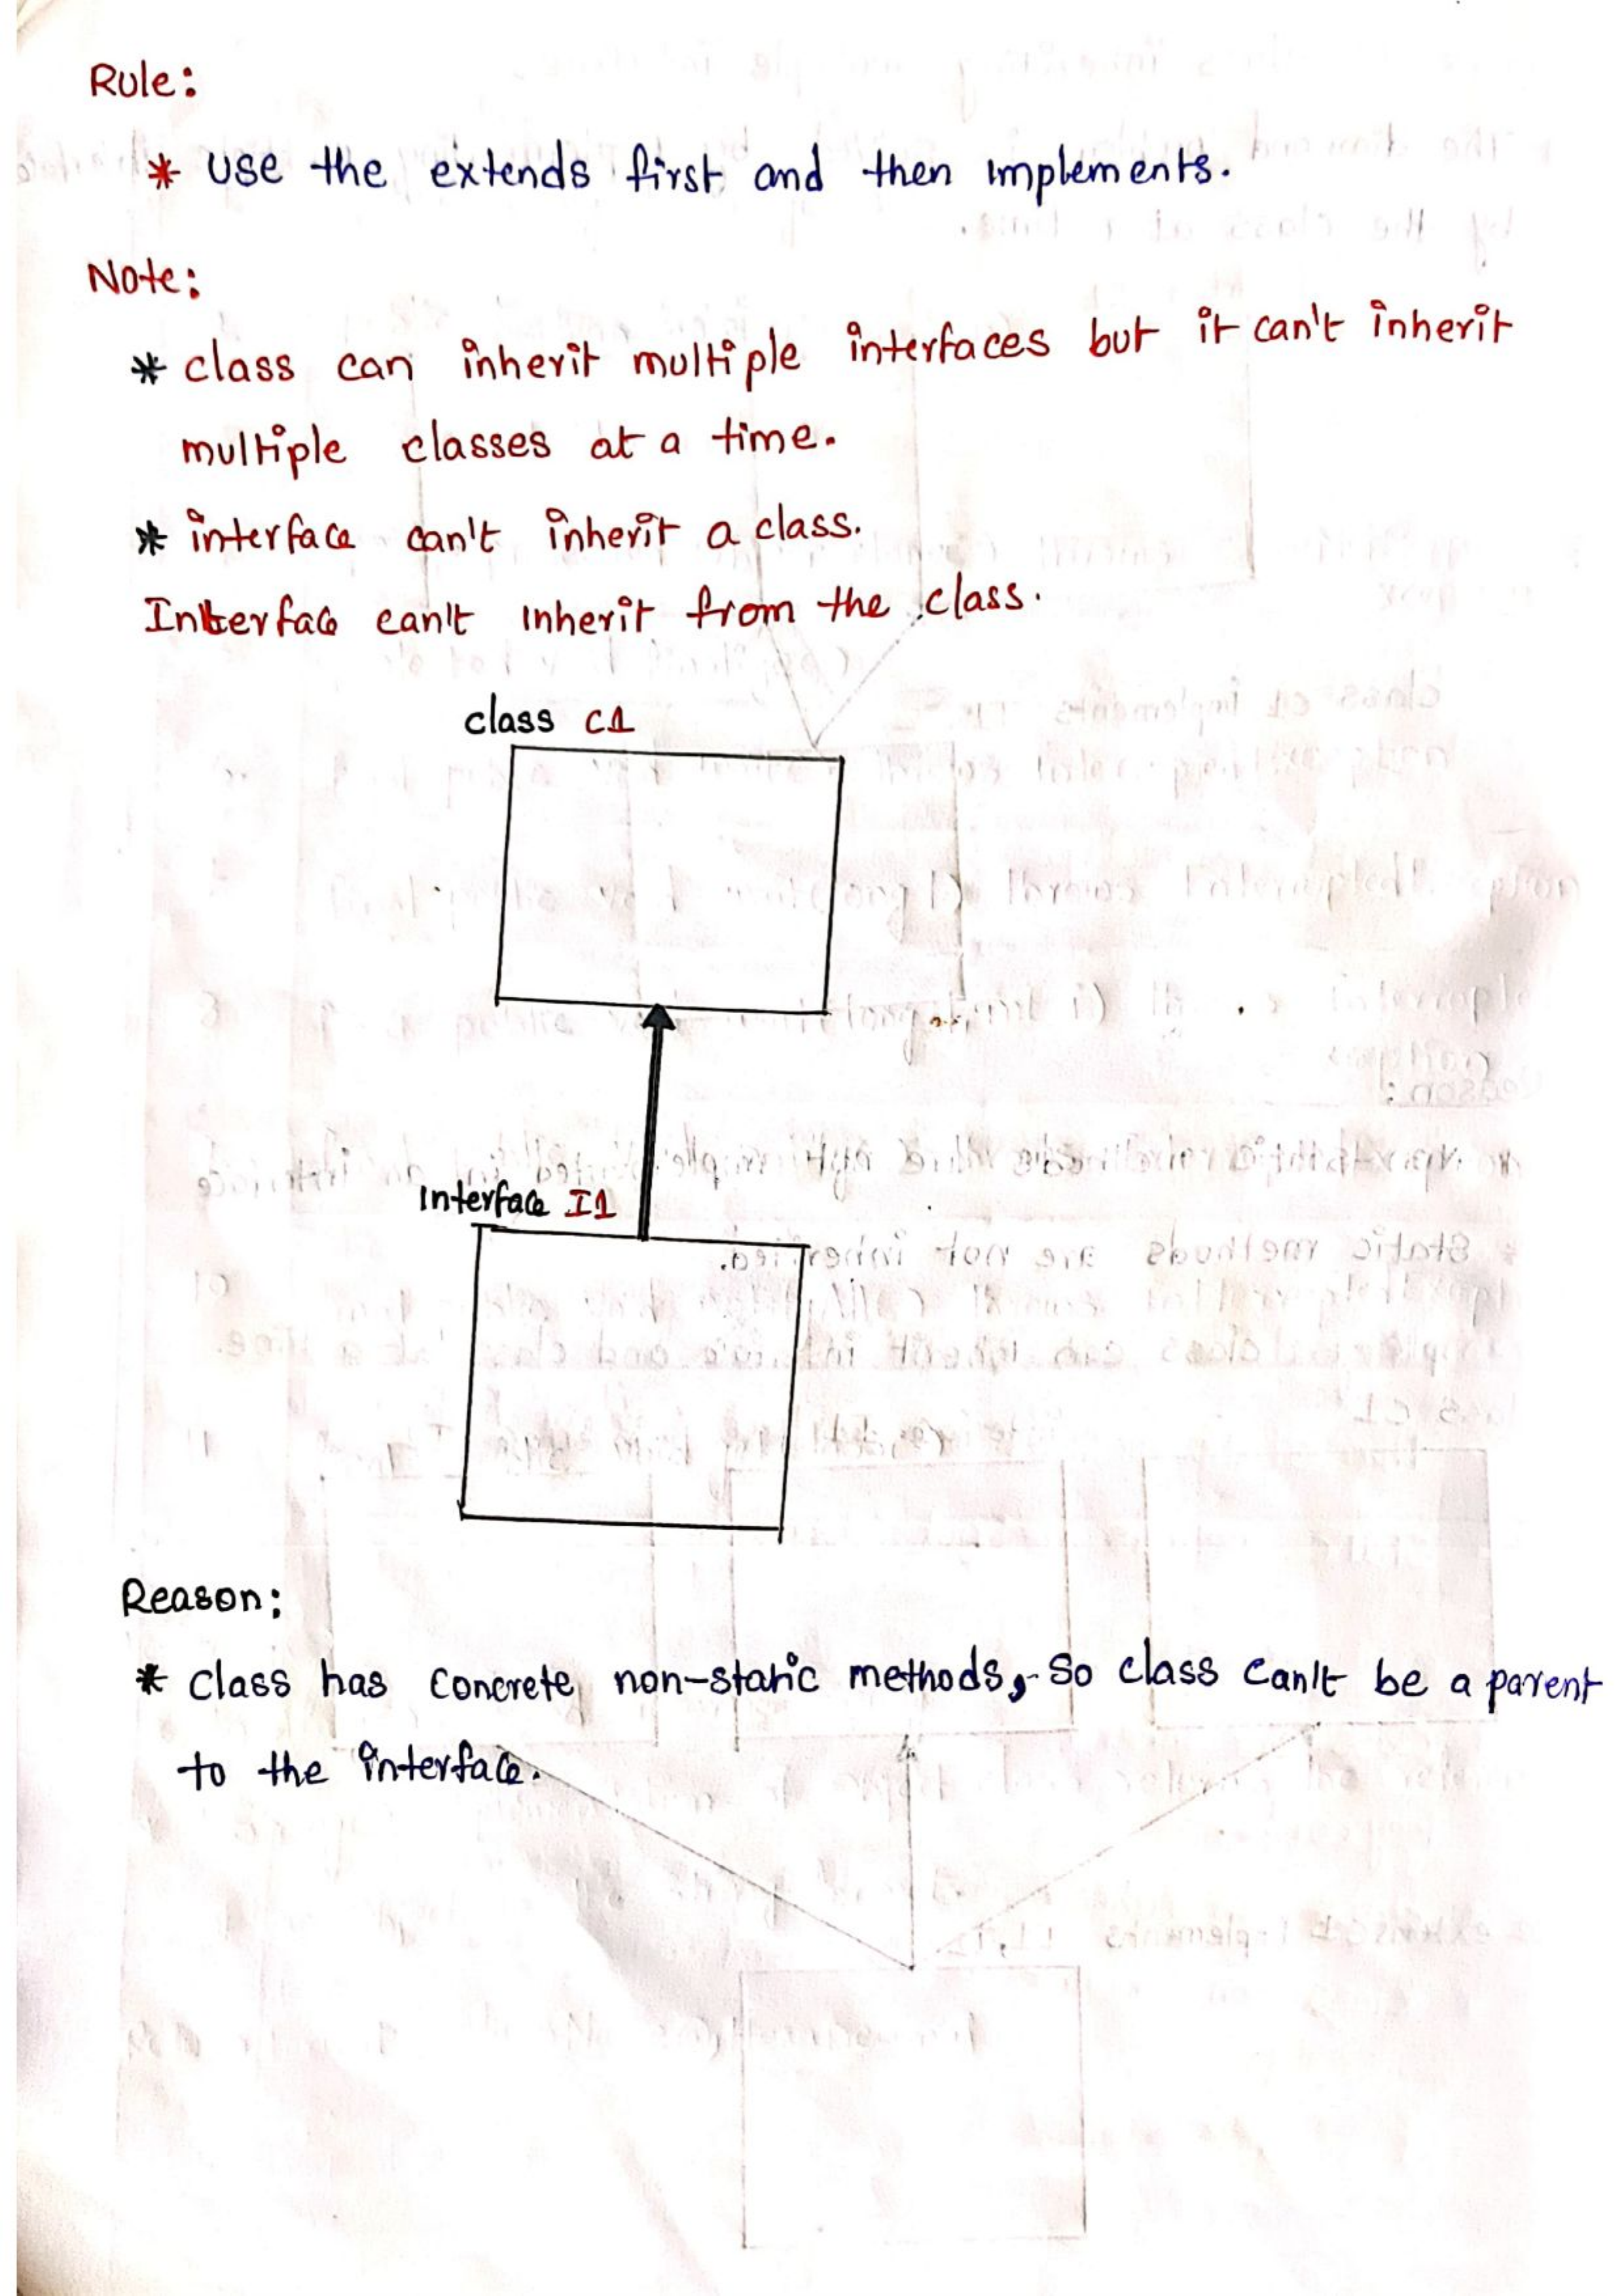 Rule:
* use the extends first and then implements.
Note:
* class can inherit multiple interfaces but it can't inherit
multiple classes at a time.
* interface can't inherit a class.
Interface can't inherit from the class.
class C1
Interface I1
Reason:
* class has concrete non-static methods, so class can't be a parent
to the interface.